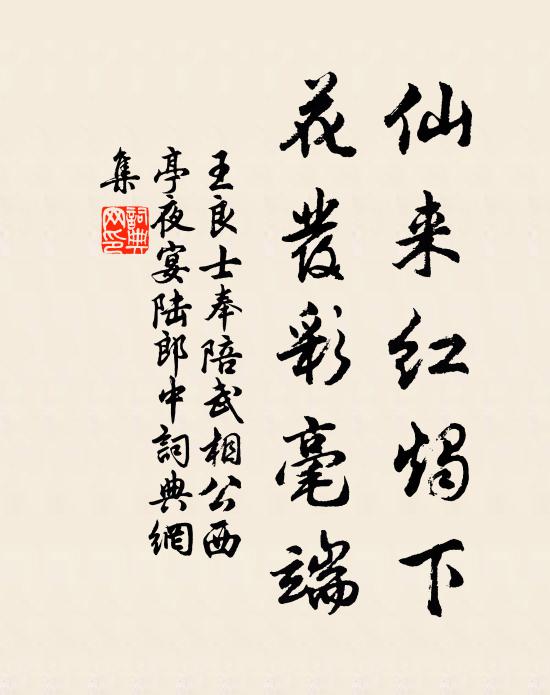 仙来红燭下
花發彩毫端
王良士奉陪武相公西
亭夜宴陆郎中詞典網
集
詞典網印